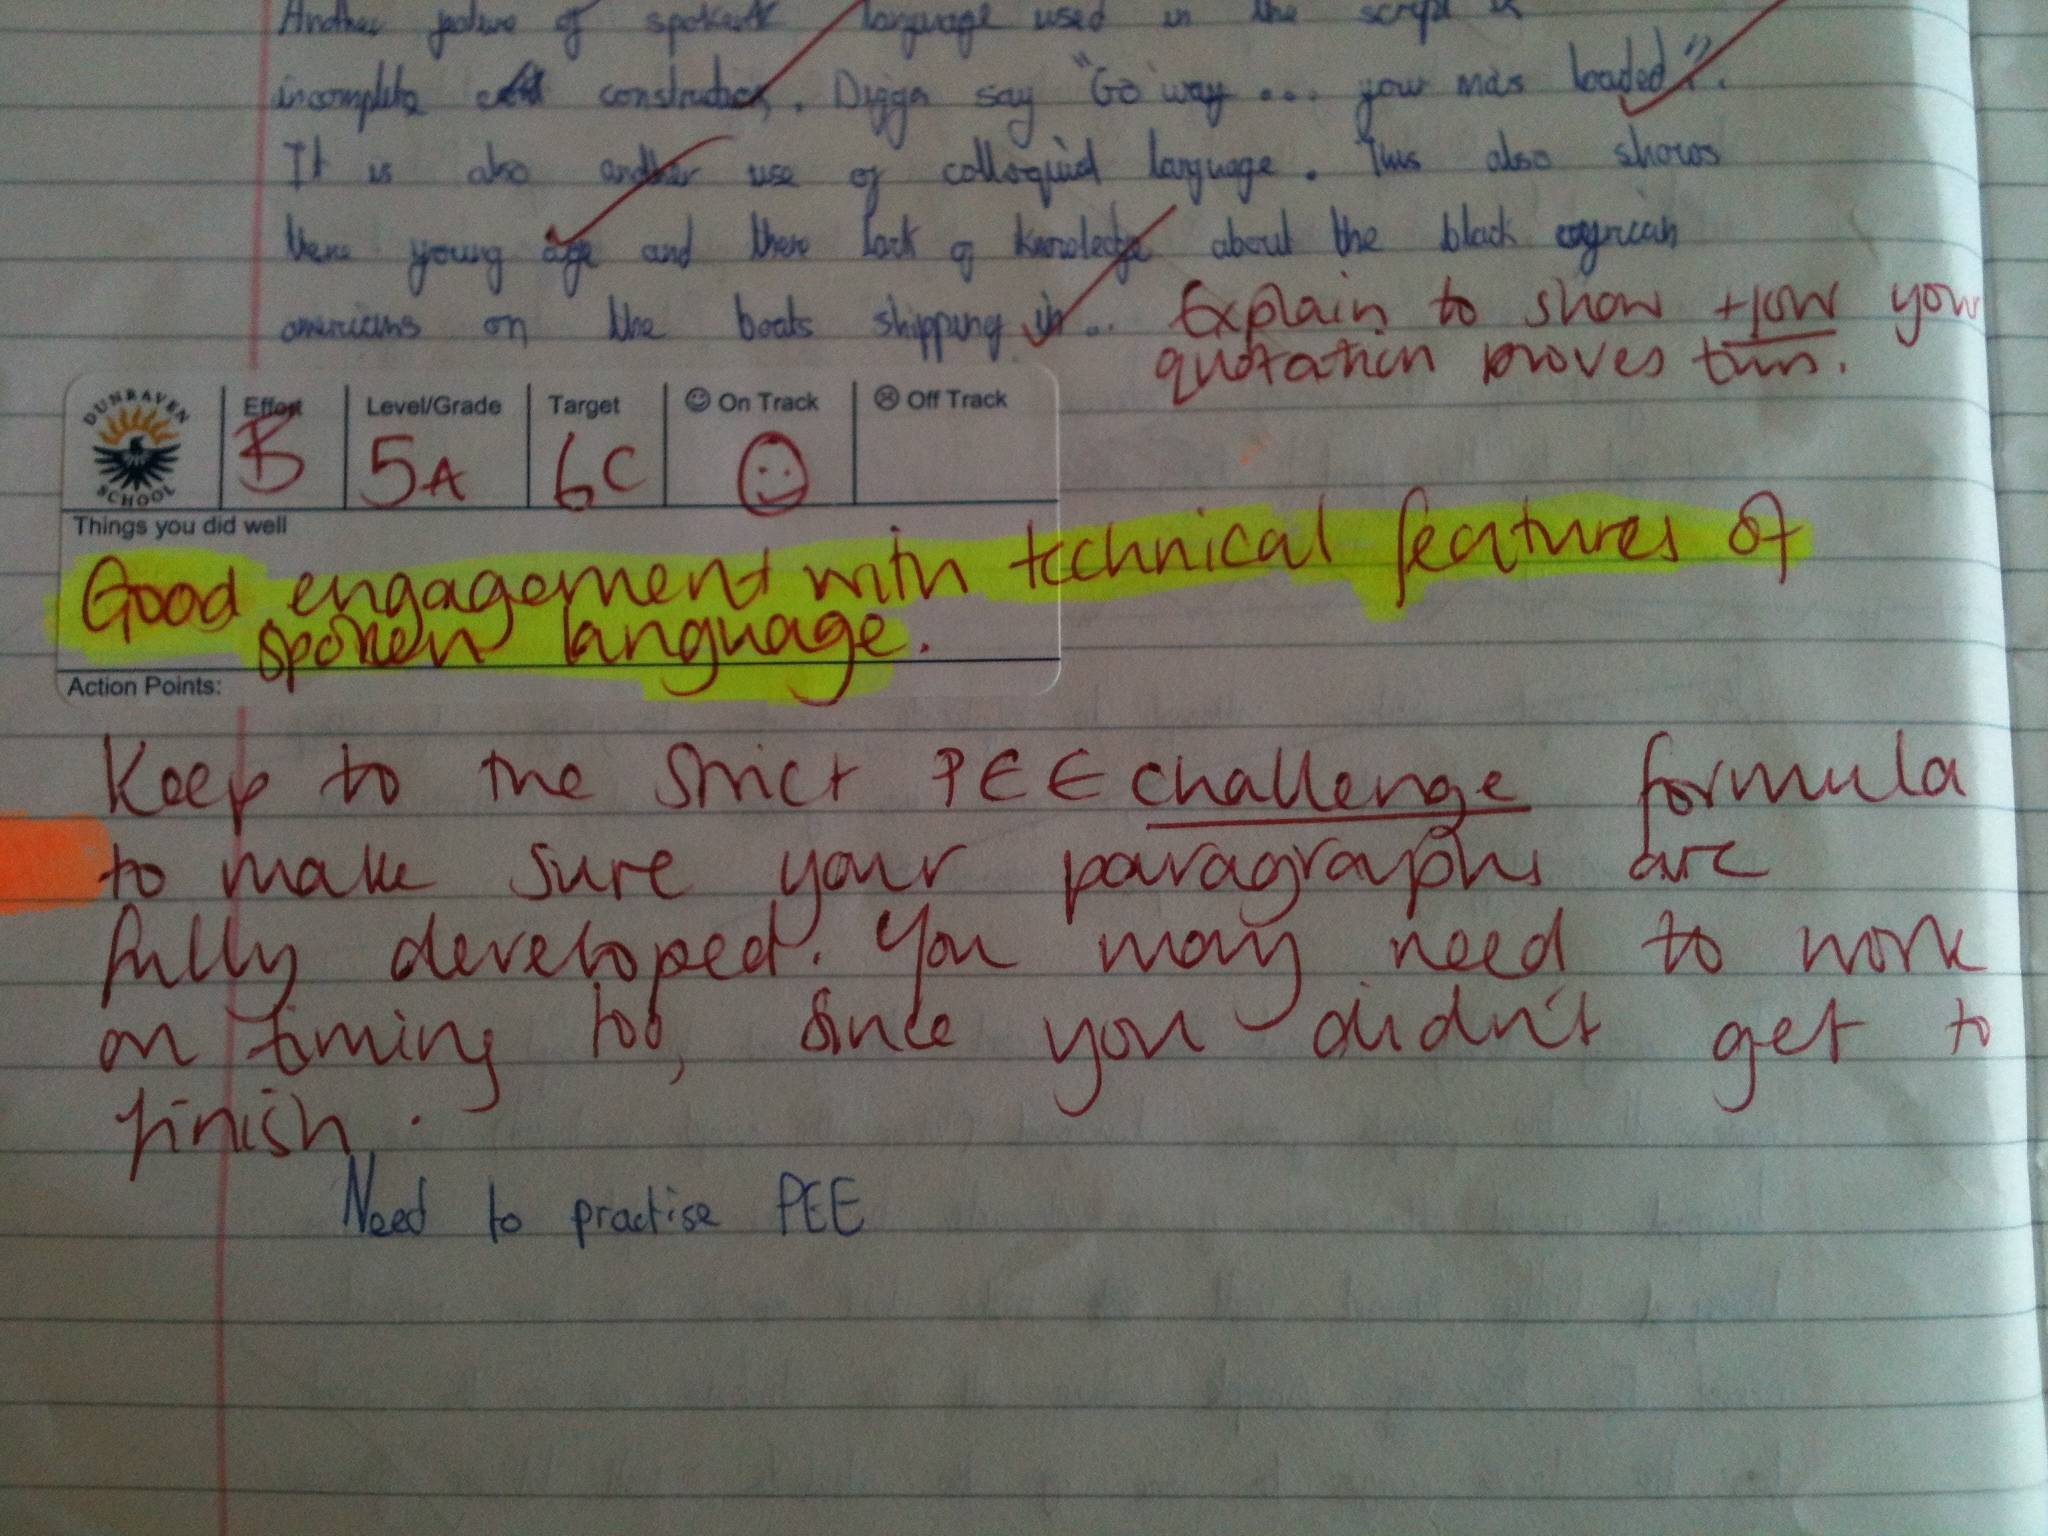 Another feature of spoken language used in the script is
incomplete construction. Digga say "Go way ... your mas loaded".
It is also another use of colloquial language. This also shows
there young age and there lack of knowledge about the black
americans on the boats shipping in..
Explain to show HOW your
quotation proves this.
DUNRAVEN SCHOOL
Effort Level/Grade Target ☺ On Track ☹ Off Track
B 5A 6C
Things you did well
Good engagement with technical features of
spoken language.
Action Points:
Keep to the strict PEE challenge formula
to make sure your paragraphs are
fully developed. You may need to work
on timing too, since you didn't get to
finish.
Need to practise PEE